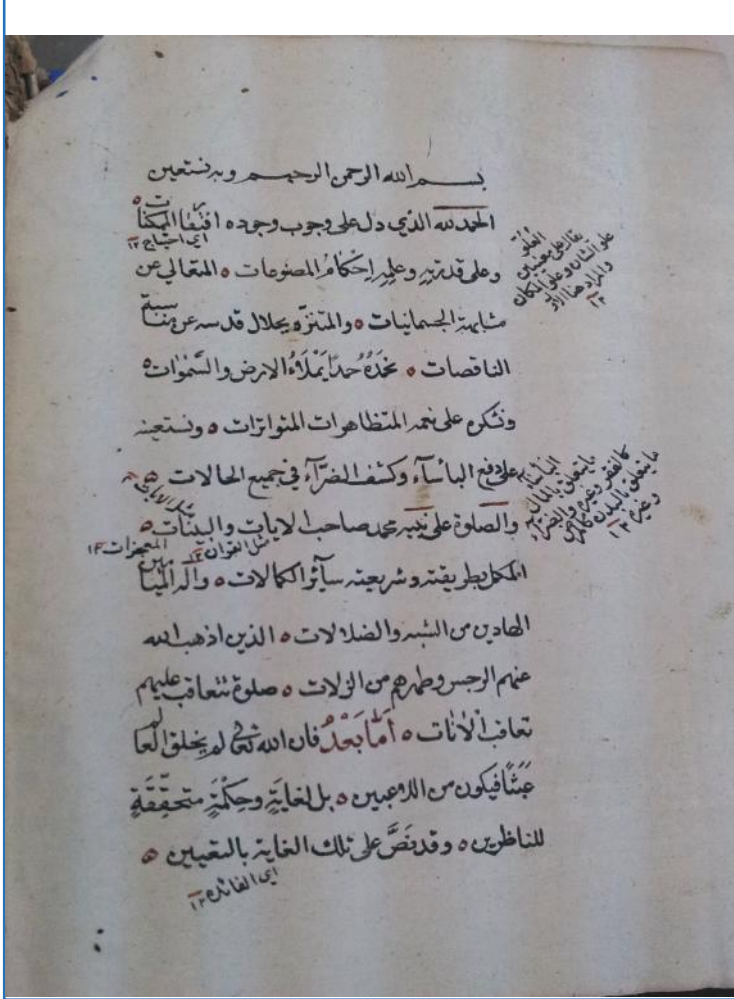 بسم الله الرحمن الرحيم وبه نستعين
الحمد لله الذي دل على وجوب وجوده افتقار الممكنات ٥
اى احتياج ١٢
وعلى قدرته وعلمه احكام المصنوعات ٥ المتعالي عن
مشابهة الجسمانيات ٥ والمتنزه بجلال قدسه عن مناسبة
الناقصات ٥ نحمده حمدا يملاء الارض والسموات ٥
ونشكره على نعمه المتظاهرات المتواترات ٥ ونستعينه
على دفع البأسآء وكشف الضرآء في جميع الحالات ٥
والصلوة على نبيه محمد صاحب الايات والبينات ٥
مثل القران ١٢
المعجزات ١٢
المكمل بطريقته وشريعته سآئر الكمالات ٥ واله الميامين
الهادين من الشبه والضلالات ٥ الذين اذهب الله
عنهم الرجس وطهرهم من الزلات ٥ صلوة تتعاقب عليهم
تعاقب الانات ٥ أما بعد فان الله تعالى لم يخلق العالم
عبثا فيكون من اللاعبين ٥ بل لغاية وحكمة متحققة
للناظرين ٥ وقد نص على تلك الغاية بالتعيين ٥
اى الفائده ١٢
العلو
يقال على معنيين
علو الشان وعلو المكان
والمراد هنا الاول
١٢
البأساء
ما يتعلق بالمال
كالفقر وغيره والضراء
ما يتعلق بالبدن كالمرض
وغيره ١٢